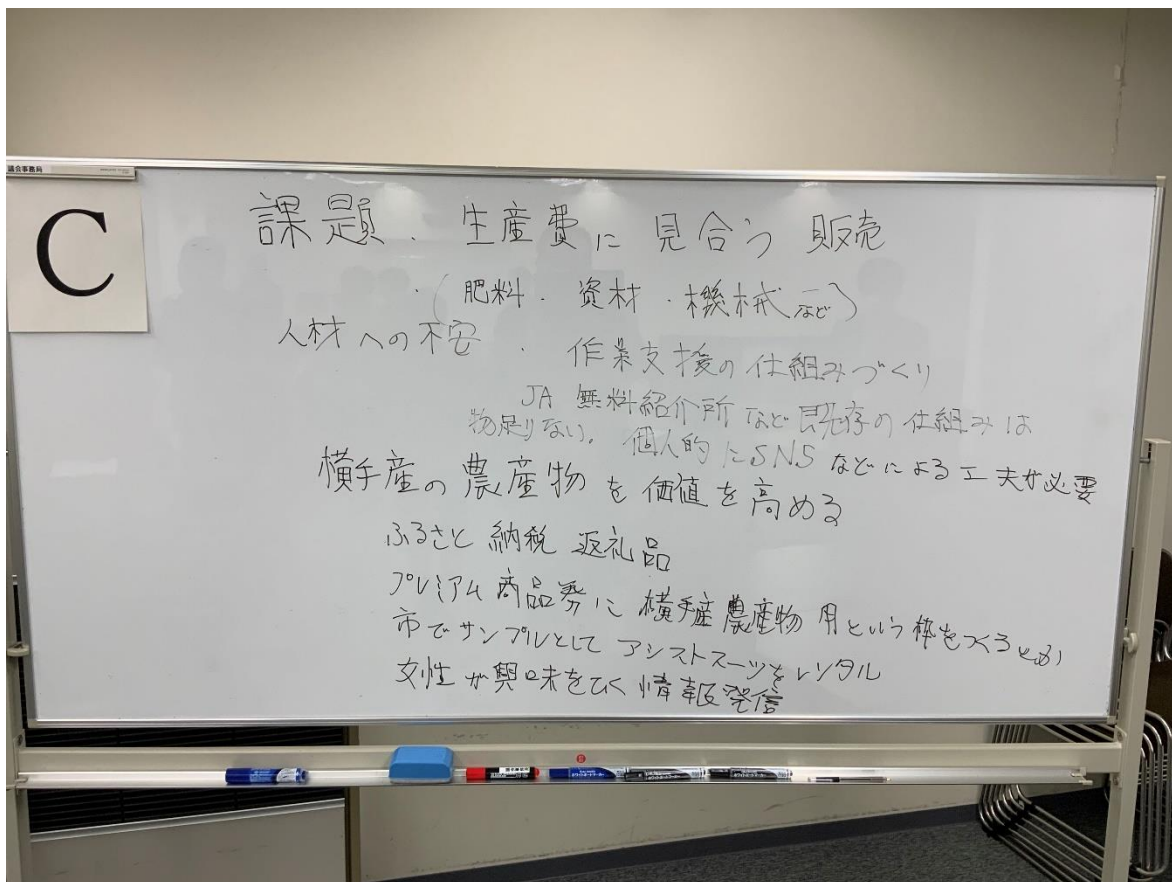 議会事務局
C
課題・生産費に見合う販売
・(肥料・資材・機械など)
人材への不安・作業支援の仕組みづくり
JA無料紹介所など既存の仕組みは
物足りない。個人的にSNSなどによる工夫が必要
横手産の農産物を価値を高める
ふるさと納税 返礼品
プレミアム商品券に横手産農産物用という枠をつくるとか
市でサンプルとしてアシストスーツをレンタル
女性が興味をひく情報発信